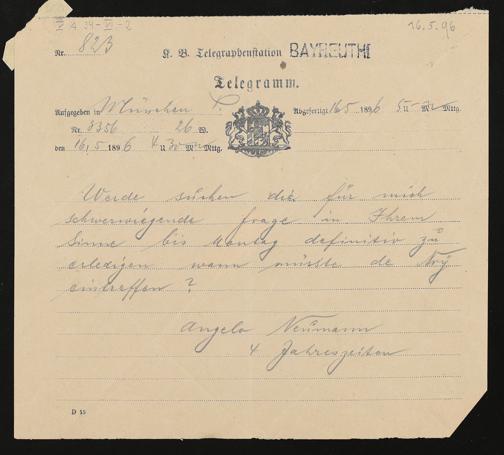 IV A 34-VI-2
16.5.96
Nr. 823 K. B. Telegraphenstation BAYREUTH
Telegramm.
Aufgegeben in München Abgefertigt 16 5 1896 5 U M Mttg.
Nr. 8356 26 W.
den 16,5 1896 4 U 30 M Mttg.
Werde suchen die für mich
schwerwiegende frage in Ihrem
Sinne bis Montag definitiv zu
erledigen wann müsste de Noy
eintreffen ?
Angelo Neumann
4 Jahreszeiten
D 55